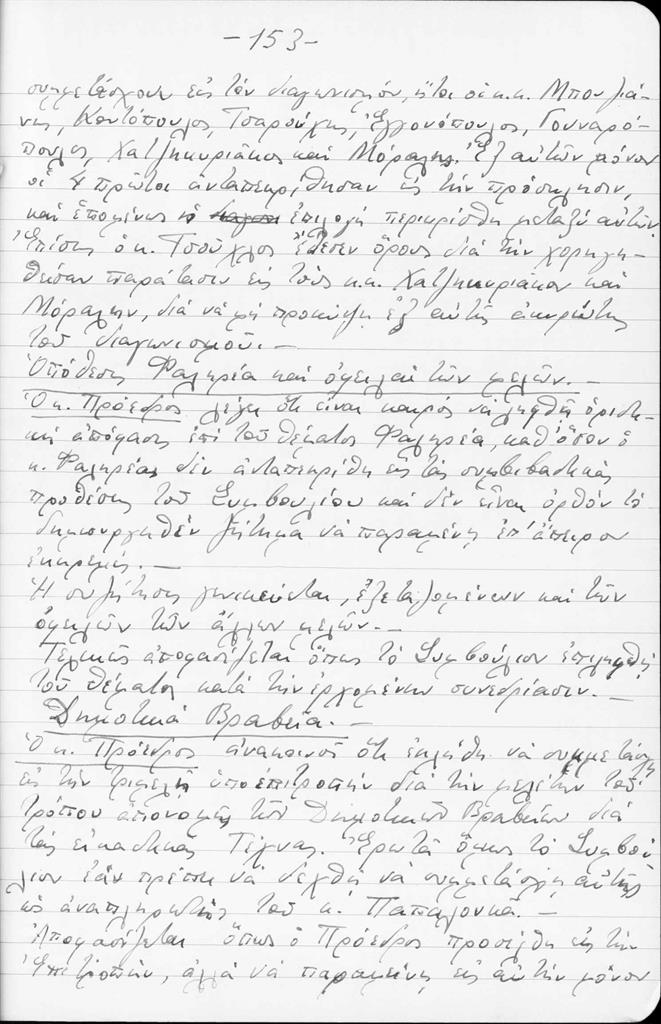 -153-
συμμετάσχουν εἰς τὸν διαγωνισμόν, ἤτοι οἱ κ.κ. Μπουζιά-
νης, Κοντόπουλος, Τσαρούχης, Ἐγγονόπουλος, Γουναρό-
πουλος, Χατζηκυριάκος καὶ Μόραλης. Ἐξ αὐτῶν μόνον
οἱ 4 πρῶτοι ἀνταπεκρίθησαν εἰς τὴν πρόσκλησιν,
καὶ ἑπομένως ἡ ἐπιλογὴ περιωρίσθη μεταξὺ αὐτῶν.
Ἐπίσης ὁ κ. Τσοῦχλος ἔθεσεν ὅρους διὰ τὴν χορηγη-
θεῖσαν παράτασιν εἰς τοὺς κ.κ. Χατζηκυριάκον καὶ
Μόραλην, διὰ νὰ μὴ προκύψῃ ἐξ αὐτῆς ἀκυρότης
τοῦ διαγωνισμοῦ.-
Ὑπόθεσις Φαληρέα καὶ ὀφειλαὶ τῶν μελῶν.-
Ὁ κ. Πρόεδρος λέγει ὅτι εἶναι καιρὸς νὰ ληφθῇ ὁριστι-
κὴ ἀπόφασις ἐπὶ τοῦ θέματος Φαληρέα, καθ' ὅσον ὁ
κ. Φαληρέας δὲν ἀνταπεκρίθη εἰς τὰς συμβιβαστικὰς
προθέσεις τοῦ Συμβουλίου καὶ δὲν εἶναι ὀρθὸν τὸ
δημιουργηθὲν ζήτημα νὰ παραμένῃ ἐπ' ἄπειρον
ἐκκρεμές.-
Ἡ συζήτησις γενικεύεται, ἐξεταζομένων καὶ τῶν
ὀφειλῶν τῶν ἄλλων μελῶν.-
Τελικῶς ἀποφασίζεται ὅπως τὸ Συμβούλιον ἐπιληφθῇ
τοῦ θέματος κατὰ τὴν ἐρχομένην συνεδρίασιν.-
Δημοτικὰ Βραβεῖα.-
Ὁ κ. Πρόεδρος ἀνακοινοῖ ὅτι ἐκλήθη νὰ συμμετάσχῃ
εἰς τὴν τριμελῆ ὑποεπιτροπὴν διὰ τὴν μελέτην τοῦ
τρόπου ἀπονομῆς τῶν Δημοτικῶν Βραβείων διὰ
τὰς εἰκαστικὰς Τέχνας. Ἐρωτᾷ ὅμως τὸ Συμβού-
λιον ἐὰν πρέπει νὰ δεχθῇ νὰ συμμετάσχῃ αὐτῆς
ὡς ἀναπληρωτὴς τοῦ κ. Παπαλουκᾶ.-
Ἀποφασίζεται ὅπως ὁ Πρόεδρος προσέλθῃ εἰς τὴν
Ἐπιτροπήν, ἀλλὰ νὰ παραμείνῃ εἰς αὐτὴν μόνον